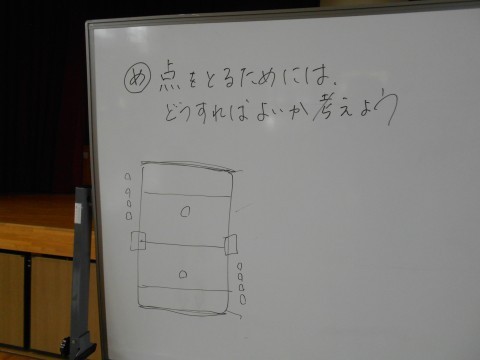 め 点をとるためには、
どうすればよいか考えよう